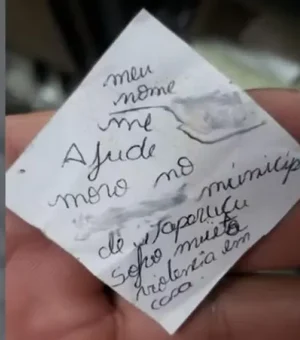 meu
nome
me
Ajude
moro no
municip
de itaporucu
sofro muita
violencia em
casa.